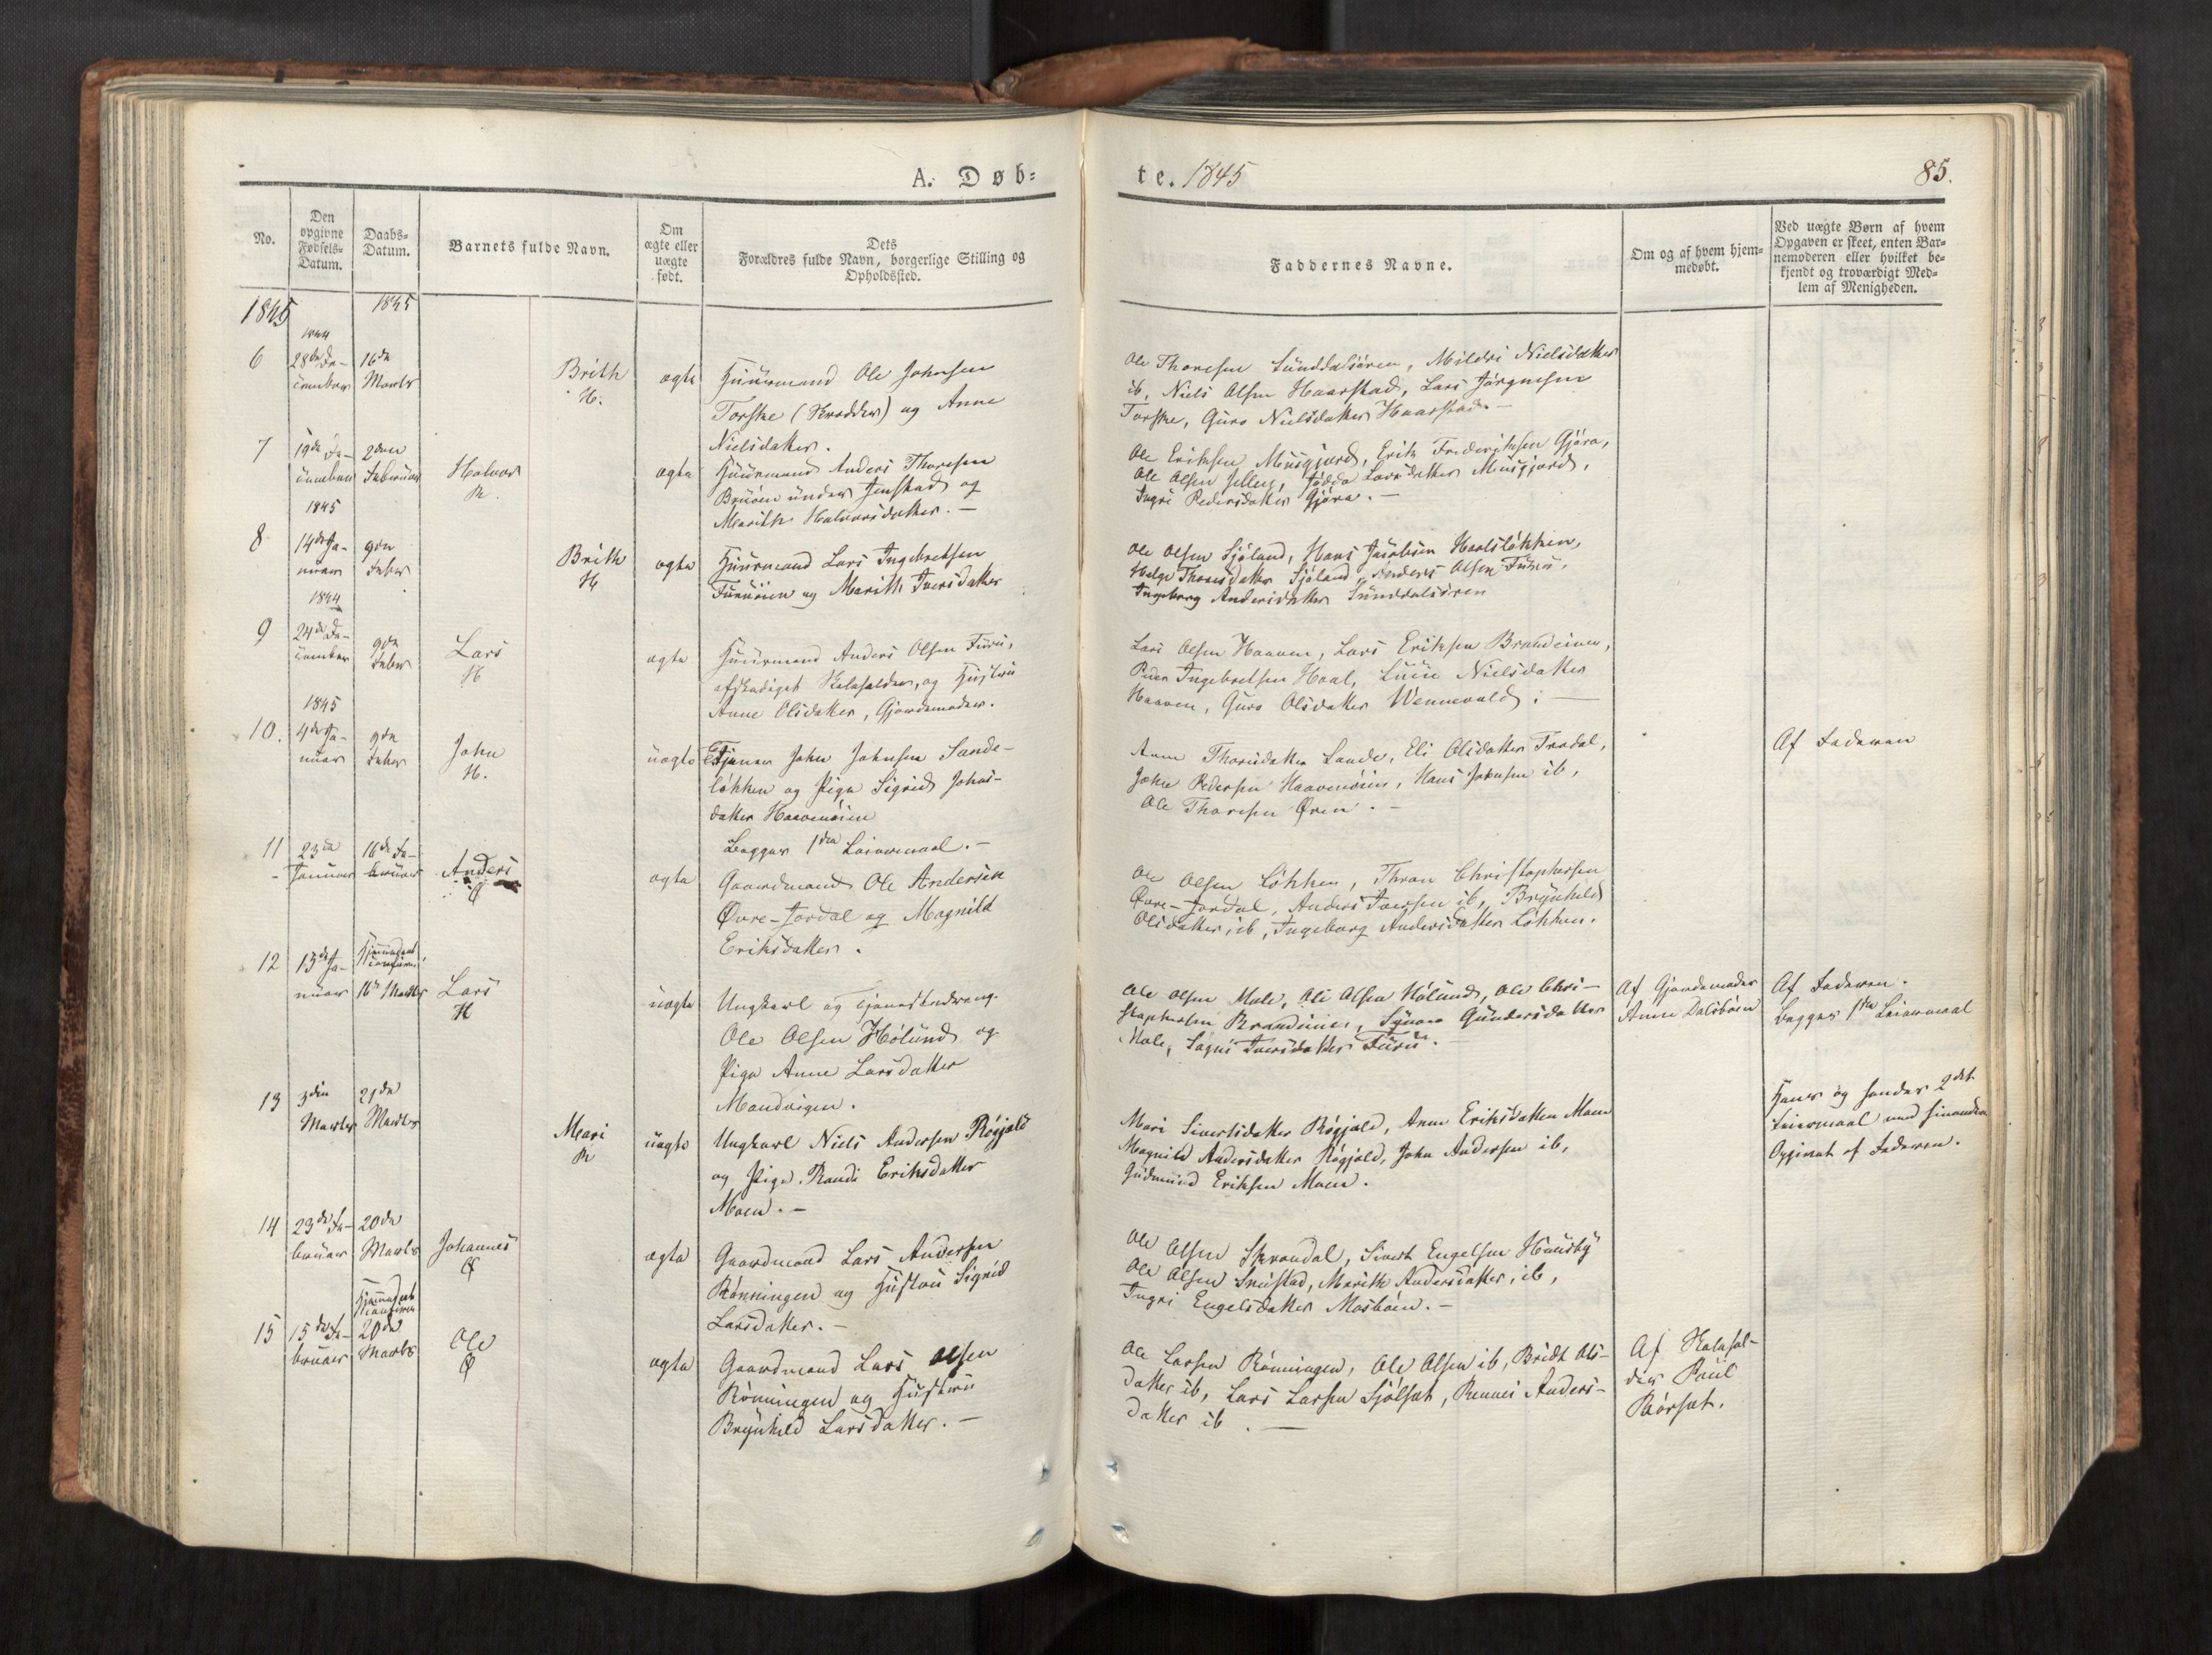 A. Døb=
No.
Den opgivne Fødsels= Datum.
Daabs= Datum.
Barnets fulde Navn.
Om ægte eller uægte født.
Dets Forældres fulde Navn, borgerlige Stilling og Opholdssted.
1845
1845
1844
6 28de De- 16de
cember Marts
Brith
H.
ægte
Huusmand Ole Johnsen
Torske (Skrædder) og Anne
Nielsdatter.
7 19de De- 2den
cember Februar
Halvor
R.
ægte
Huusmand Anders Thoresen
Bruøien under Jenstad og
Marith Halvorsdatter. —
1845
8 14de Ja- 9de
nuar Febr
Brith
H
ægte
Huusmand Lars Ingebretsen
Furuøien og Marith Iversdatter
1844
9 24de De- 9de
cember Febr
Lars
H
ægte
Huusmand Anders Olsen Furu,
afskediget Skoleholder, og Hustru
Anne Olsdatter, Gjordemoder.
1845
10. 4de Ja- 9de
nuar Febr
John
H.
uægte
Tjener John Johnsen Sande-
løkken og Pige Sigrid Johns-
datter Haavenøien
Begges 1ste Leiermaal. —
11 23de 16de Fe-
Januar bruar
Anders
Ø
ægte
Gaardmand Ole Andersen
Øvre-Jordal og Magnild
Eriksdatter.
12 13de Ja- Hjemmedøbt
nuar 16de Marts
Lars
H
uægte
Ungkarl og Tjenestedreng
Ole Olsen Hølund og
Pige Anne Larsdatter
Mandvigen.
13 3die 21de
Marts Marts
Mari
R
uægte
Ungkarl Niels Andersen Røgjeld
og Pige Randi Eriksdatter
Moen. —
14 23de Fe- 20de
bruar Marts
Johannes
Ø
ægte
Gaardmand Lars Andersen
Rønningen og Hustru Sigrid
Larsdatter. —
Hjemmedøbt
15 15de Fe- 20de
bruar Marts
Ole
Ø
ægte
Gaardmand Lars Olsen
Rønningen og Hustru
Brynhild Larsdatter. —
te. 1845
85.
Faddernes Navne.
Om og af hvem hjem=
medøbt.
Ved uægte Børn af hvem
Opgaven er skeet, enten Bar=
nemoderen eller hvilket be=
kjendt og troværdigt Med=
lem af Menigheden.
Ole Thoresen Sunddalsøren, Mildri Nielsdatter
ib, Niels Olsen Haarstad, Lars Jørgensen
Torske, Guro Nielsdatter Haarstad. —
Ole Eriksen Musgjerd, Erik Frederiksen Gjøra,
Ole Olsen Larsdatter Musgjerd,
Ingri Pedersdatter Gjøra. —
Ole Olsen Sjøland, Hans Jacobsen Hoelsløkken,
Helge Thoresdatter Sjøland, Anders Olsen Furu,
Ingeborg Andersdatter Sunddalsøren
Lars Olsen Haaven, Lars Eriksen Brandeiner,
Peder Ingebretsen Hoel, Nielsdatter
Haaven, Guro Olsdatter Wennevold. —
Anne Thoresdatter Sande, Eli Olsdatter Trædal,
John Pedersen Haavenøien, Hans Johnsen ib,
Ole Thoresen Øren. —
Af Faderen
Ole Olsen Løkken, Thron Christophersen
Øvre-Jordal, Anders Iversen ib, Brynhild
Olsdatter, ib, Ingeborg Andersdatter Løkken.
Ole Olsen Mæle, Ole Olsen Hølund, Ole Chri-
stophersen Brandeiner, Gundersdatter
Mæle, Iversdatter Furu.
Af Gjordemoder
Anne Dalsbøen
Af Faderen.
Begges 1ste Leiermaal
Mari Sivertsdatter Røgjeld, Anne Eriksdatter Moen
Magnild Andersdatter Røgjeld, John Andersen ib,
Gudmund Eriksen Moen.
Hans og hendes 2det
Leiermaal med hinanden
Opgivet af Faderen.
Ole Olsen Skrondal, Sivert Engelsen Huusby
Ole Olsen Snustad, Marith Andersdatter, ib,
Ingri Engelsdatter Mosbøen. —
Ole Larsen Rønningen, Ole Olsen ib, Bridt Ols-
datter ib, Lars Larsen Sjølset, Anders-
datter ib. —
Af Skolehol-
der Poul
Børset.